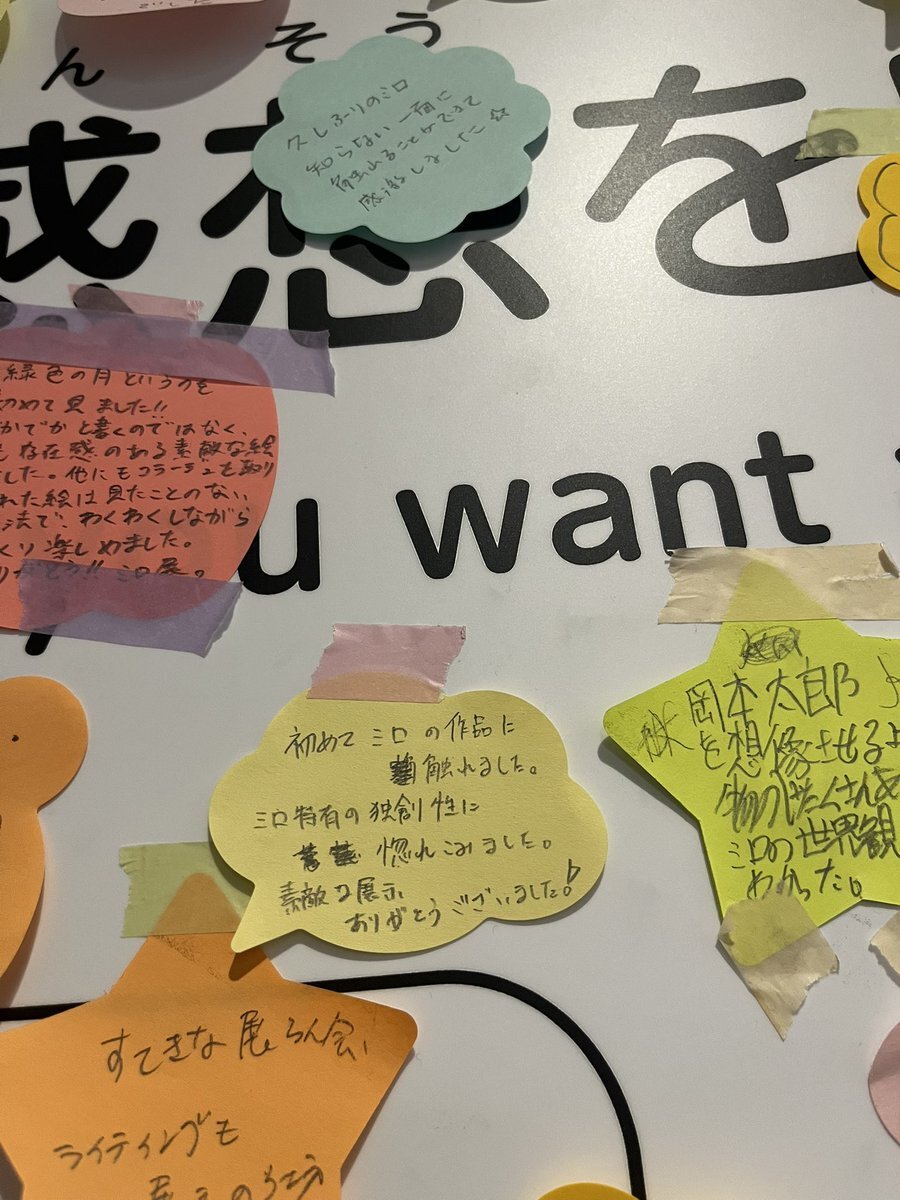 んそう
感想を
久しぶりのミロ
知らない一面に
触れることができて
感激しました☆
緑色の月というのを
初めて見ました!!
かでかと書くのではなく、
存在感のある素敵な絵
した。他にもコラージュを取り
れた絵は見たことのない
法で、わくわくしながら
くり楽しめました。
りがとう!! ミロ展。
u want
初めてミロの作品に
触れました。
ミロ特有の独創性に
惚れこみました。
素敵な展示
ありがとうございました!
岡本太郎
を想像させるよ
物がたくさんあ
ミロの世界観
わかった。
すてきな展らん会、
ライティングも